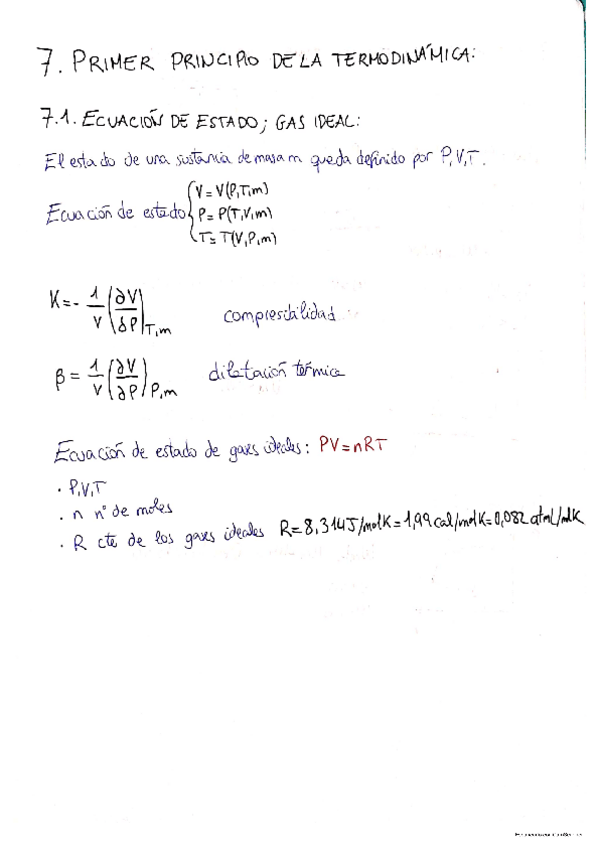 7. PRIMER PRINCIPIO DE LA TERMODINÁMICA:
7.1. ECUACIÓN DE ESTADO; GAS IDEAL:
El estado de una sustancia de masa m queda definido por P,V,T.
V = V(P,T,m)
Ecuación de estado { P = P(T,V,m)
T = T(V,P,m)
K = - 1/V (∂V/∂P)T,m compresibilidad
β = 1/V (∂V/∂P)P,m dilatación térmica
Ecuación de estado de gases ideales: PV = nRT
· P,V,T
· n nº de moles
· R cte de los gases ideales R = 8,314 J/molK = 1,99 cal/molK = 0,082 atmL/molK